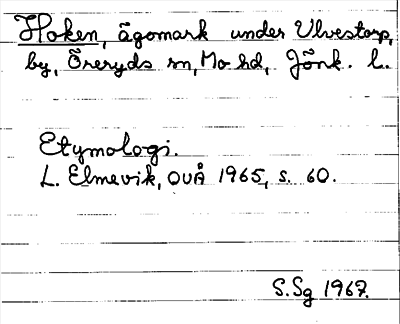 Hoken, ägomark under Ulvestorp,
by, Öreryds sn, Mo hd, Jönk. l.
Etymologi.
L. Elmevik, OUÅ 1965, s. 60.
S.Sg 1967.